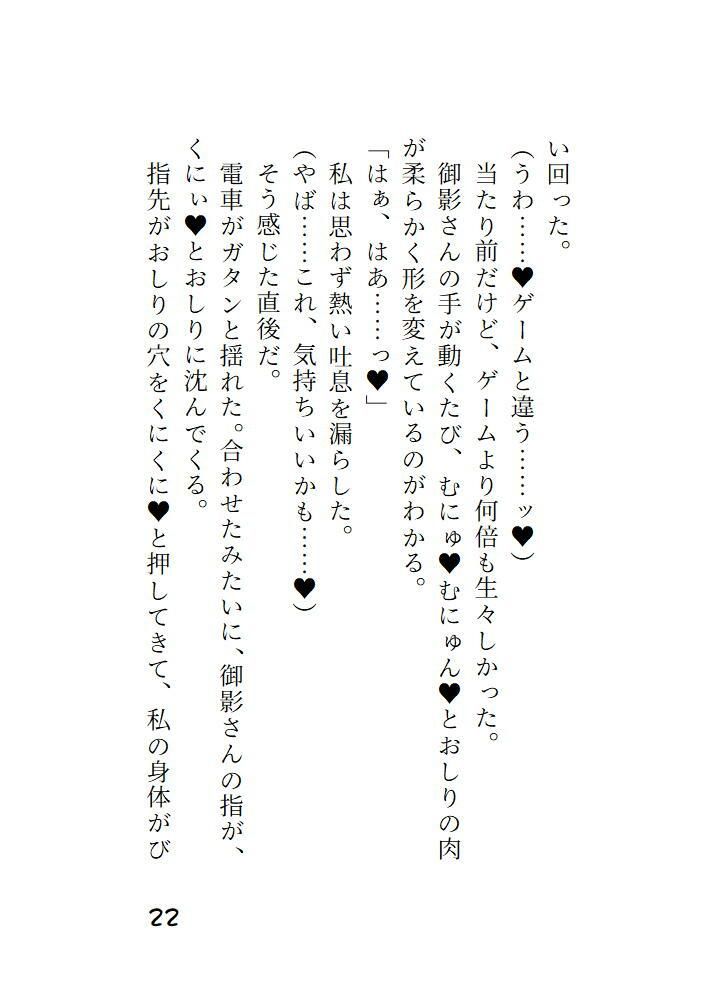 い回った。
(うわ……♥ゲームと違う……ッ♥)
当たり前だけど、ゲームより何倍も生々しかった。
御影さんの手が動くたび、むにゅ♥むにゅん♥とおしりの肉
が柔らかく形を変えているのがわかる。
「はぁ、はあ……っ♥」
私は思わず熱い吐息を漏らした。
(やば……これ、気持ちいいかも……♥)
そう感じた直後だ。
電車がガタンと揺れた。合わせたみたいに、御影さんの指が、
くにぃ♥とおしりに沈んでくる。
指先がおしりの穴をくにくに♥と押してきて、私の身体がび
22